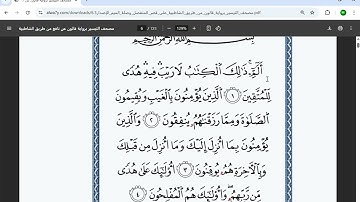 مصحف التيسير برواية قالون عن نافع من طريق الشاطبية.pdf
6 / 133
120%
بِسْمِ اللَّهِ الرَّحْمَنِ الرَّحِيمِ
أَلَمِّ ذَلِكَ الْكِتَابُ لَا رَيْبَ فِيهِ هُدًى
لِلْمُتَّقِينَ ١ الَّذِينَ يُومِنُونَ بِالْغَيْبِ وَيُقِيمُونَ
الصَّلَوٰةَ وَمِمَّا رَزَقْنَاهُمْ يُنفِقُونَ ٢ وَالَّذِينَ
يُؤْمِنُونَ بِمَا أُنزِلَ إِلَيْكَ وَمَا أُنزِلَ مِن قَبْلِكَ
وَبِالْآخِرَةِ هُمْ يُوقِنُونَ ٣ أُوْلَئِكَ عَلَى هُدًى
مِّن رَّبِّهِمْ وَأُوْلَئِكَ هُمُ الْمُفْلِحُونَ ٤